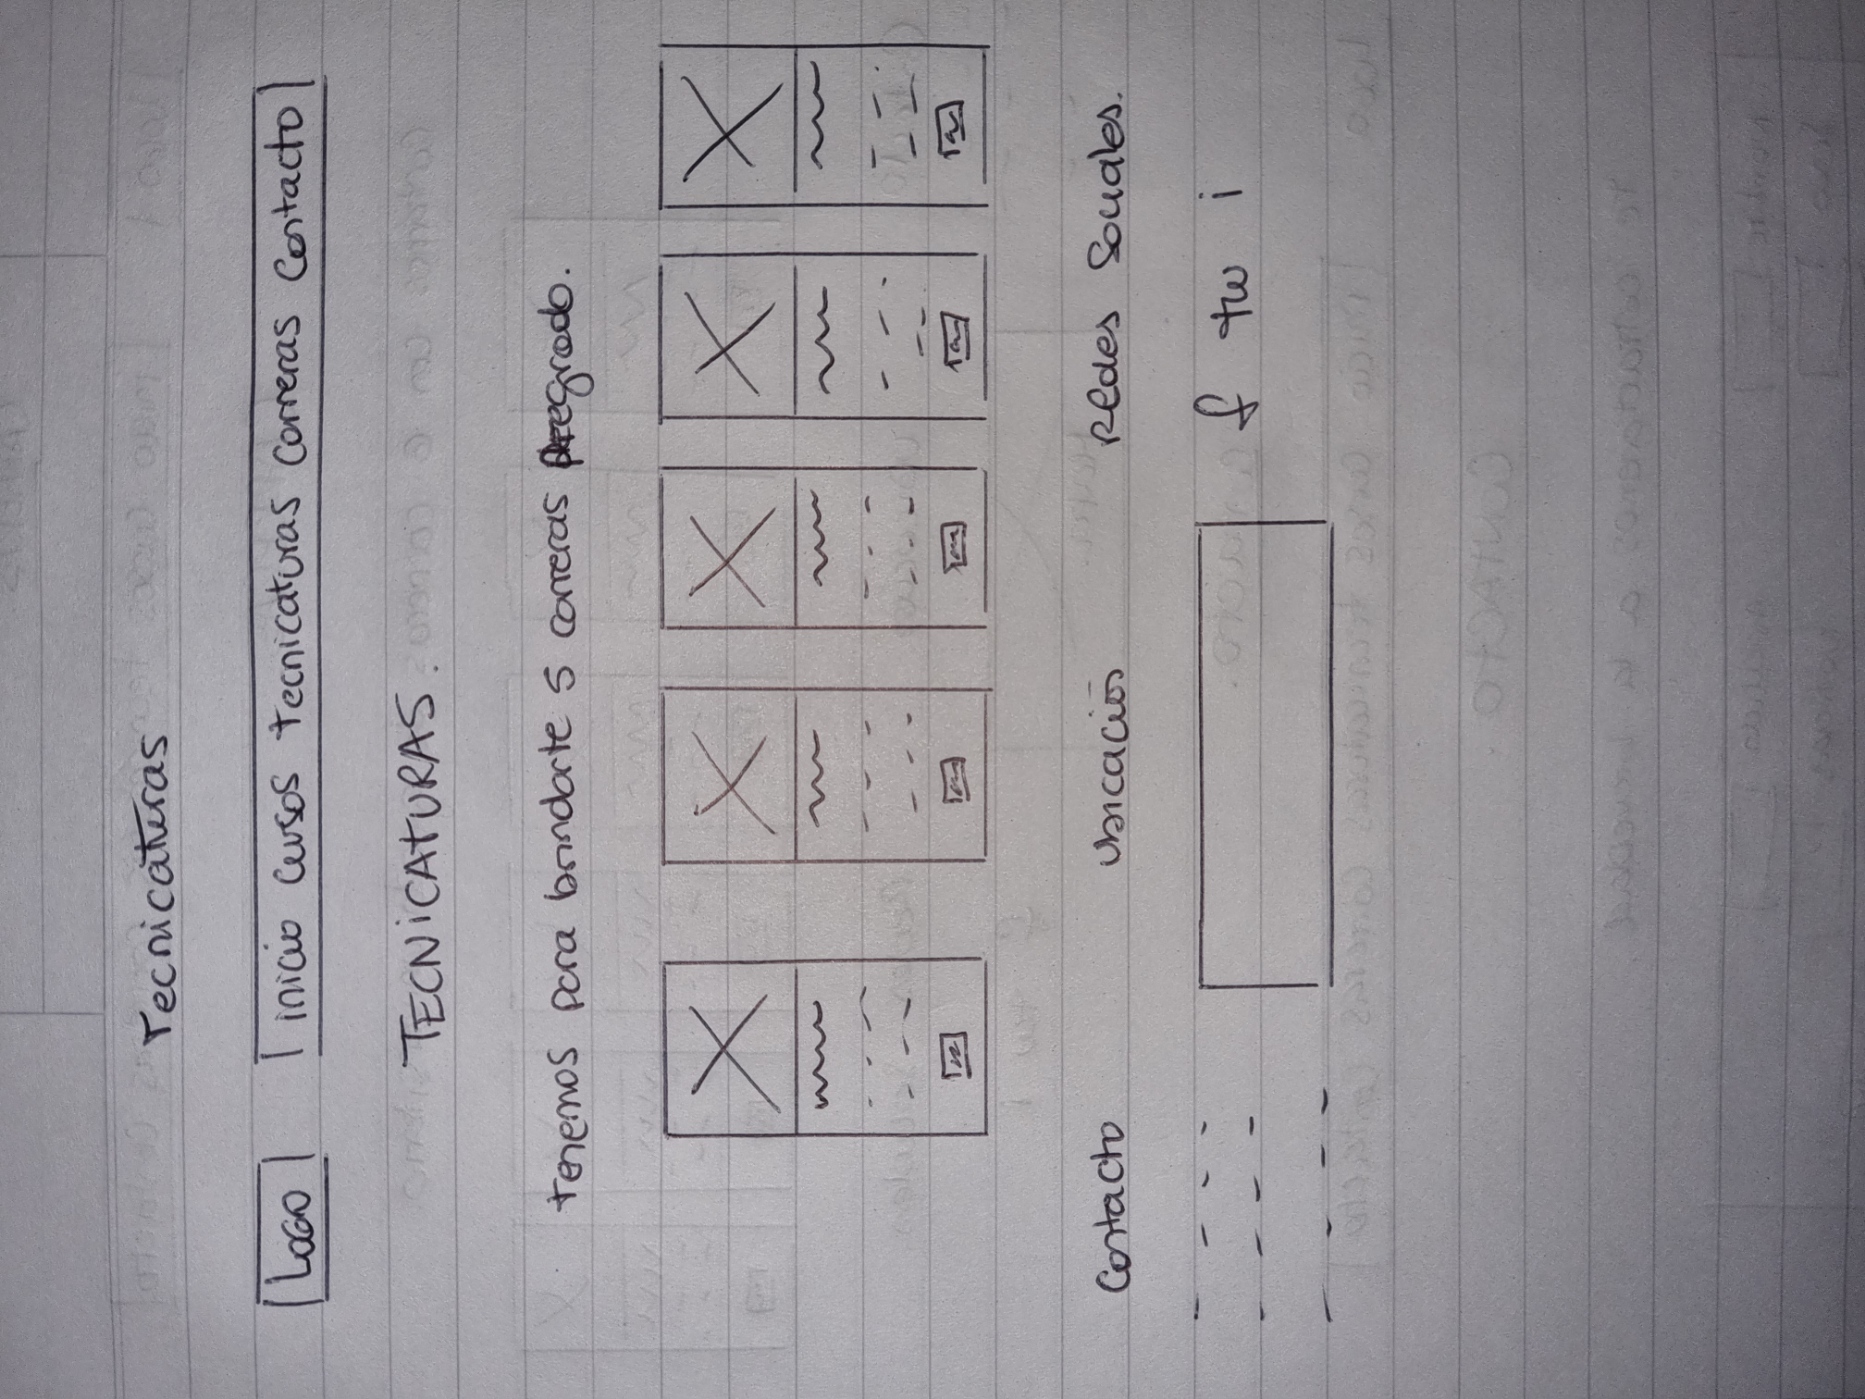 Tecnicaturas
Logo inicio cursos tecnicaturas carreras contacto
TECNICATURAS.
tenemos para brindarte 5 carreras pregrado.
Contacto ubicación Redes Sociales.
f tw i